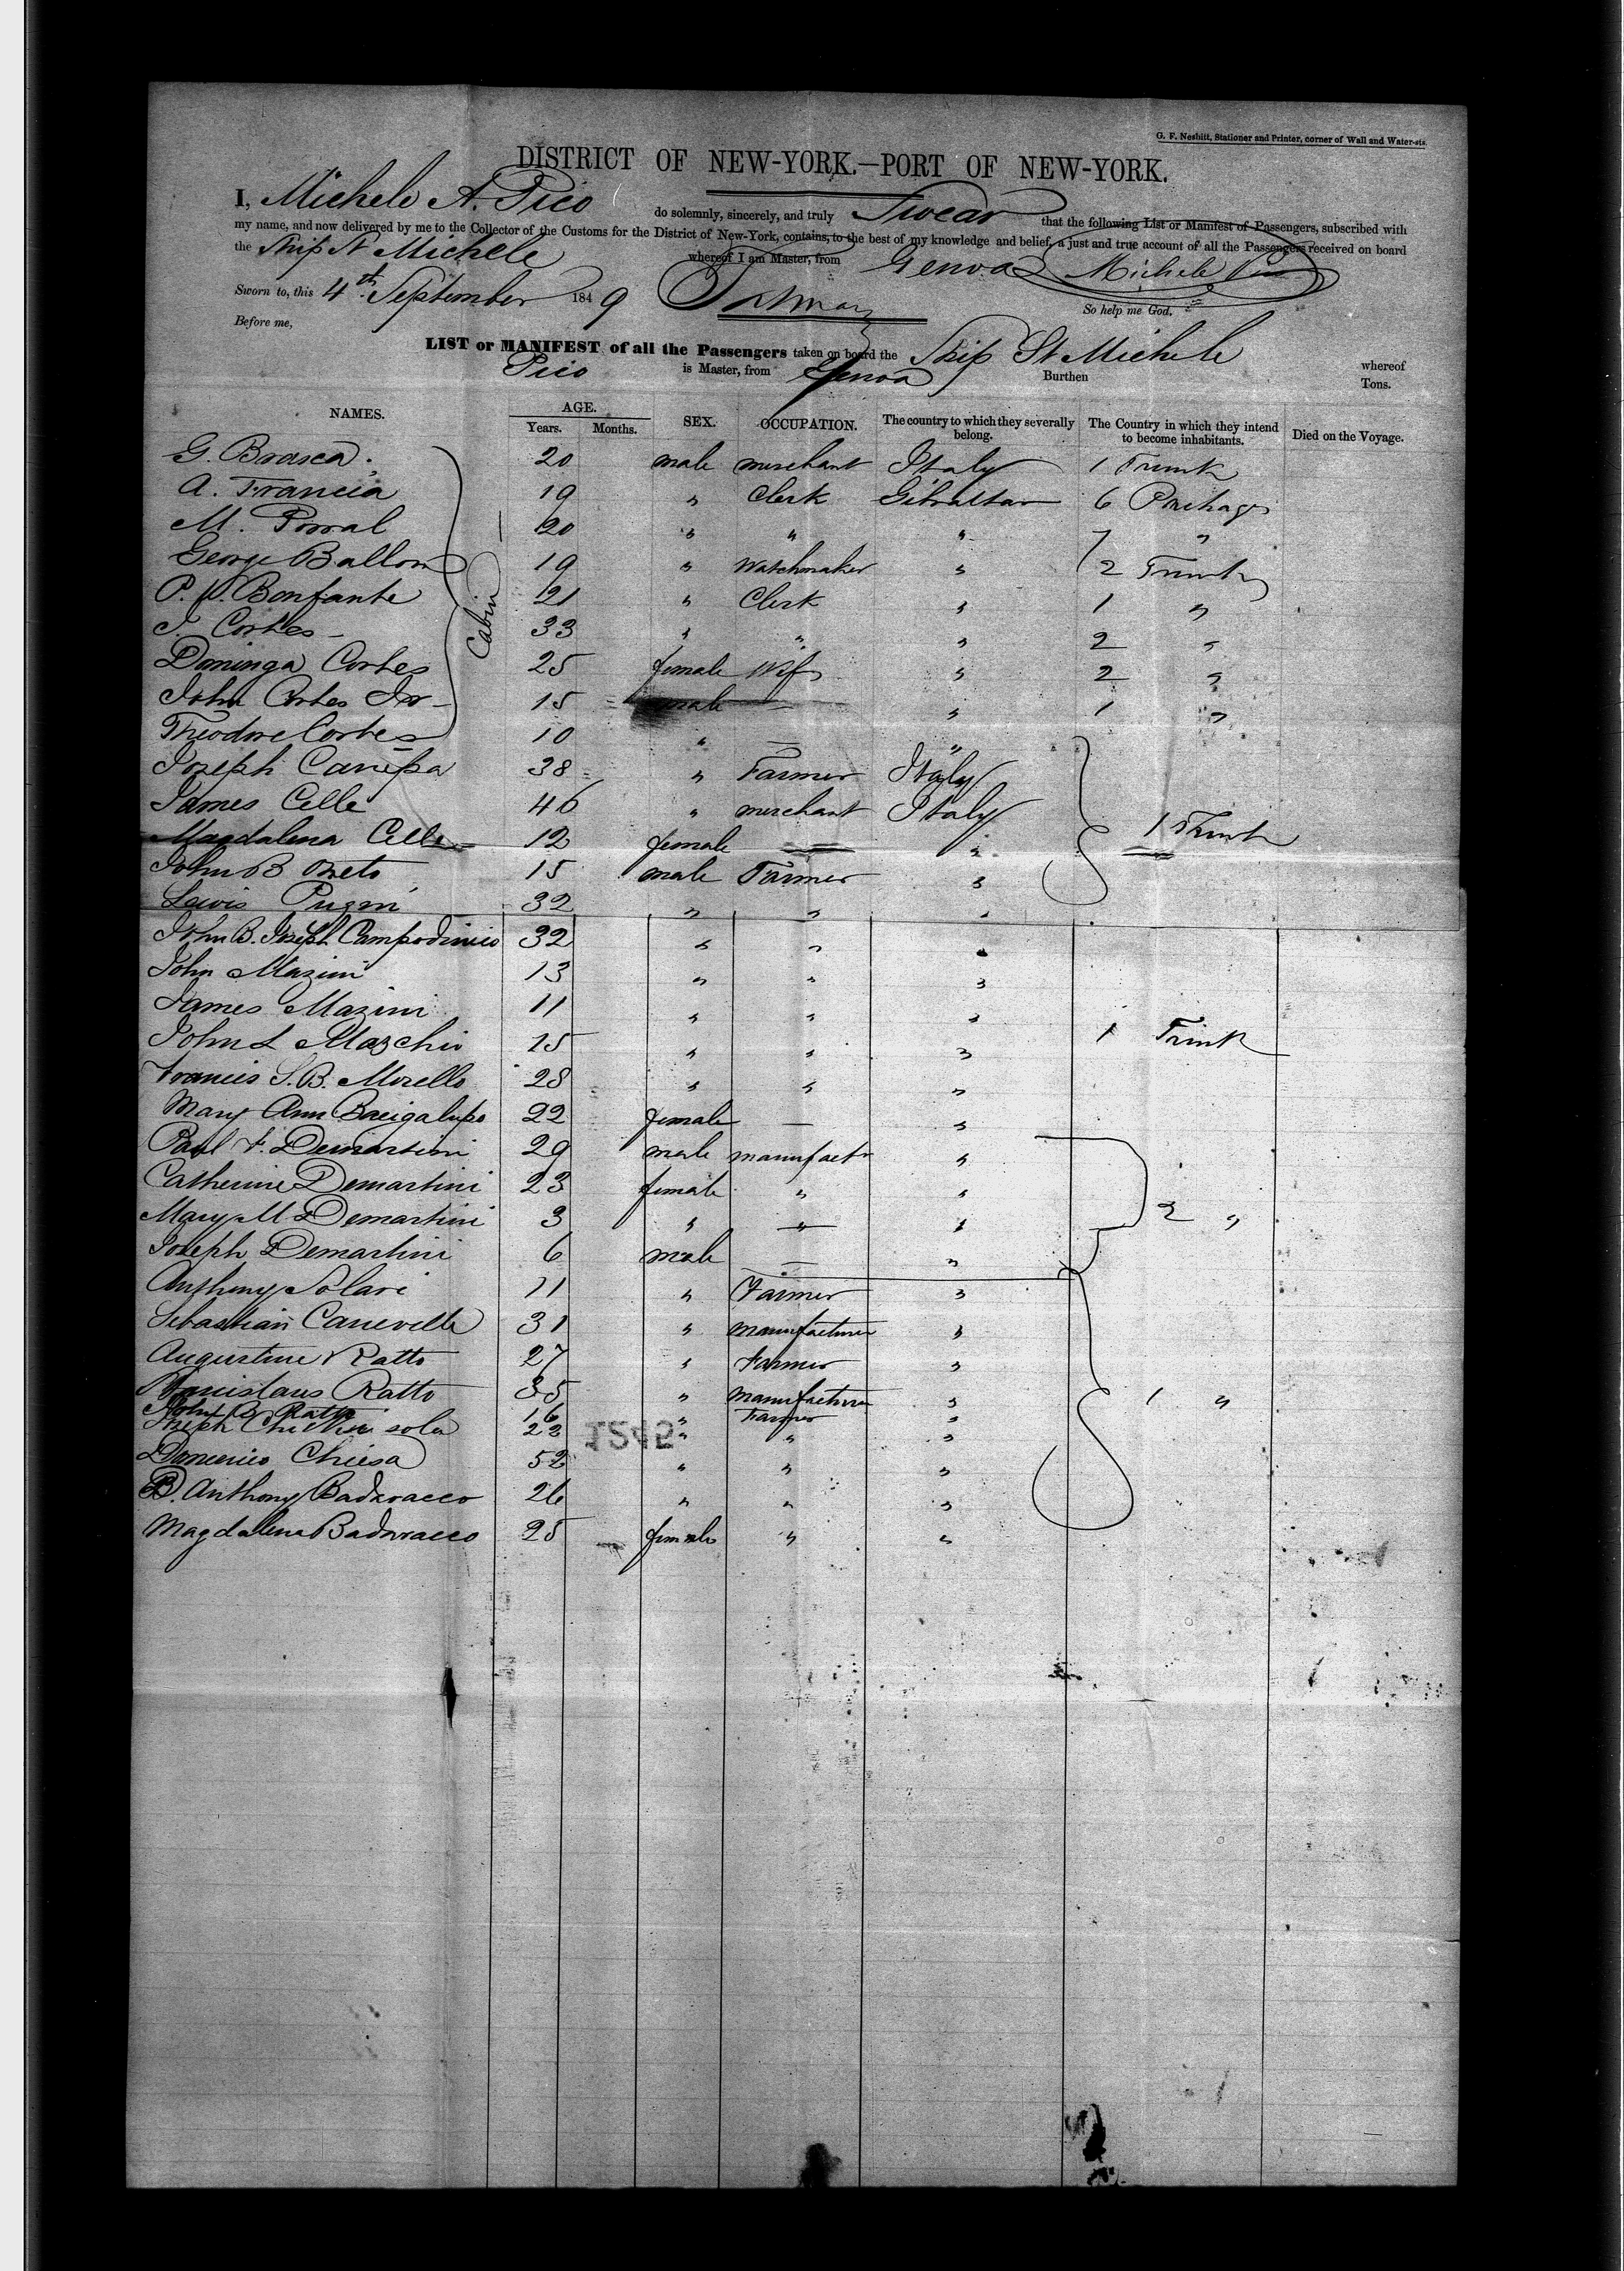 G. F. Nesbitt, Stationer and Printer, corner of Wall and Water-sts.
DISTRICT OF NEW-YORK.—PORT OF NEW-YORK.
I, Michele A. Pico do solemnly, sincerely, and truly Swear that the following List or Manifest of Passengers, subscribed with
my name, and now delivered by me to the Collector of the Customs for the District of New-York, contains, to the best of my knowledge and belief, a just and true account of all the Passengers received on board
the Ship St Michele whereof I am Master, from Genoa Michele Pico
Sworn to, this 4th September 1849 So help me God.
Before me,
LIST or MANIFEST of all the Passengers taken on board the Ship St Michele whereof
Pico is Master, from Genoa Burthen Tons.
NAMES. AGE. Years. Months. SEX. OCCUPATION. The country to which they severally belong. The Country in which they intend to become inhabitants. Died on the Voyage.
Cabin
G. Brasca. 20 male merchant Italy 1 Trunk
A. Francia 19 " Clerk Gibraltar 6 Packages
M. Porral 20 " " " 7 "
George Ballom 19 " Watchmaker " 2 Trunks
P. Bonfante 21 " Clerk " 1 "
J. Cortes 33 " " " 2 "
Dominga Cortes 25 female Wife " 2 "
John Cortes Jr 15 male — " 1 "
Theodore Cortes 10 " — "
Joseph Canepa 38 " Farmer Italy
James Celle 46 " merchant Italy 1 Trunk
Magdalena Celle 12 female — "
John B Oneto 15 male Farmer "
Lewis 32 " " "
John B. Joseph Campodonico 32 " " "
John Mazini 13 " " "
James Mazini 11 " " "
John L Mazchio 15 " " " 1 Trunk
Francis S. B. Morello 28 " " "
Mary Ann Bacigalupo 22 female — "
Paul F. Demartini 29 male manufactr "
Catherine Demartini 23 female " "
Mary M Demartini 3 " — " 2 "
Joseph Demartini 6 male — "
Anthony Solari 11 " Farmer "
Sebastian Canevelle 31 " manufacturer "
Augustine Ratto 27 " Farmer "
Stanislaus Ratto 35 " manufacturer " 1 "
John B Ratto 16 " Farmer "
Joseph 22 " " "
Domenico Chiesa 52 " " "
B. Anthony Badaracco 26 " " "
Magdalena Badaracco 25 female " "
1245